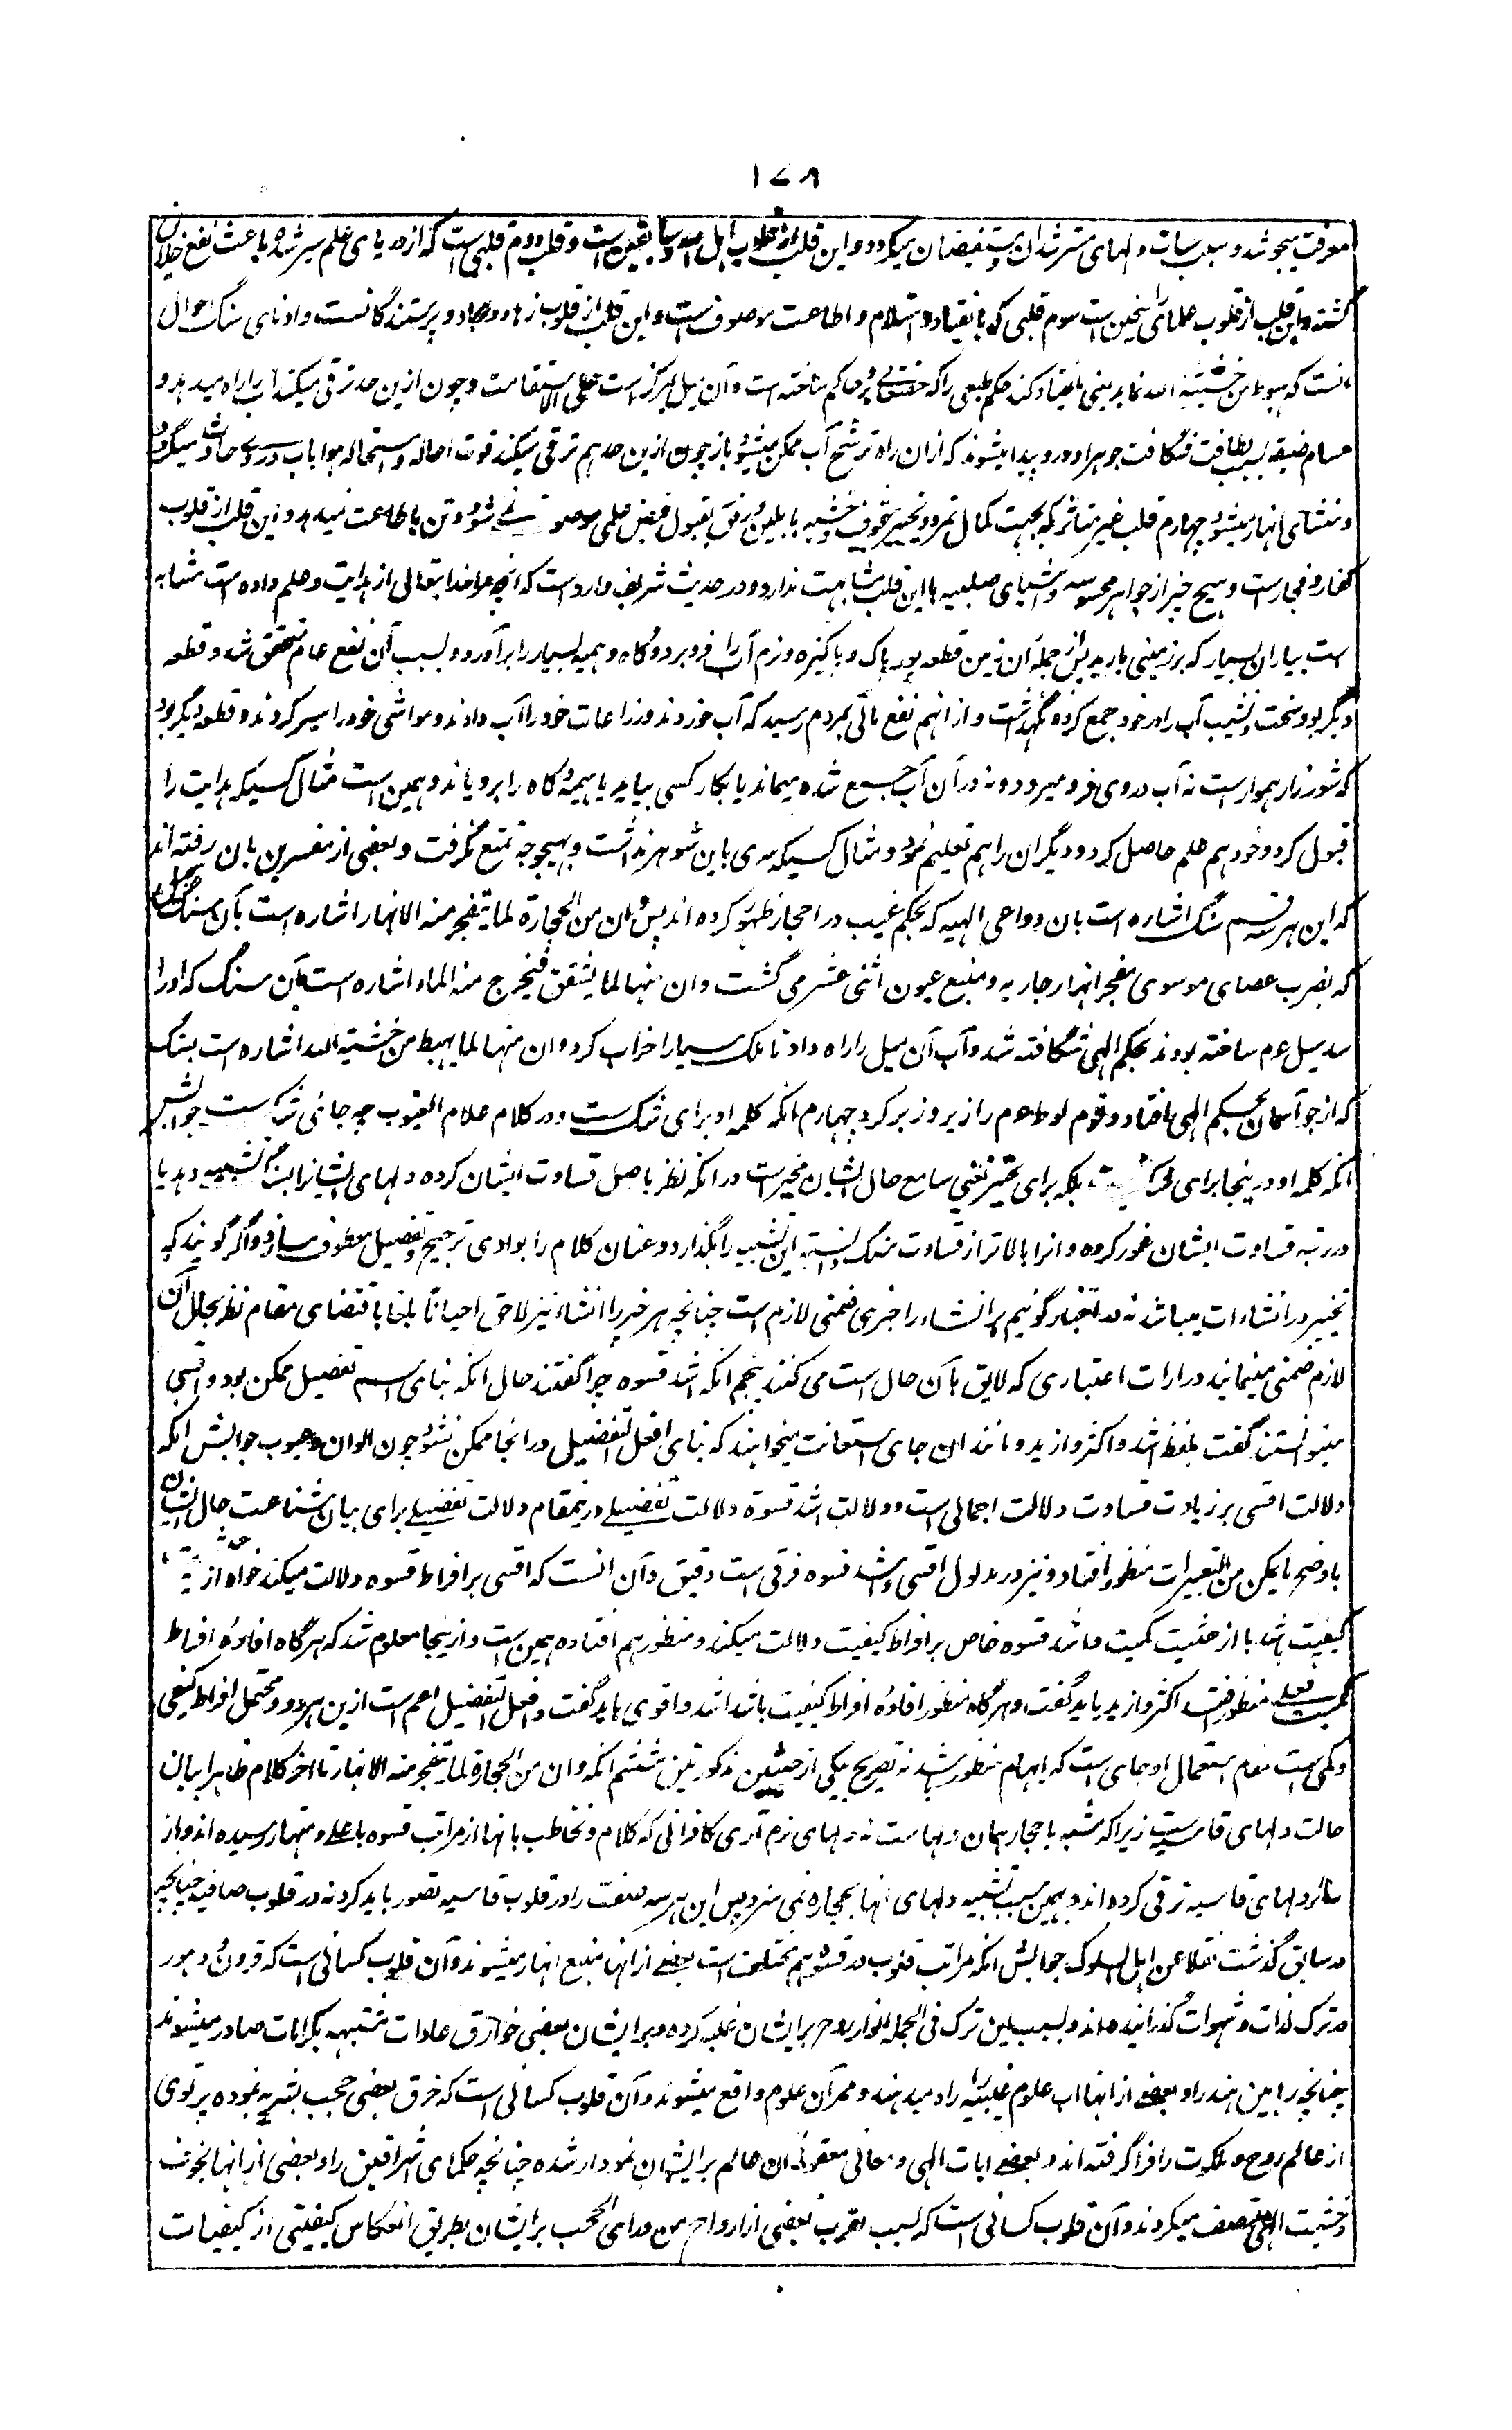 ۱۷۸
معرفت میجوشد و سبب حیات دلهای مسترشدان و مستفیضان میگردد و این قلب از قلوب اهل است و قلب دوم قلبی است که از دریای علم سیر شده باعث نفع خلائق
گشته و این قلب از قلوب علمای راسخین است سوم قلبی که بانقیاد و استسلام و اطاعت موصوف است و این قلب از قلوب زهاد و عباد و پرستندگانست و ادنای سنگ احوال
انست که هبوط من خشیة الله نماید یعنی انقیاد کند حکم طبعی را که حقتعالی برو حاکم ساخته است و آن میل مرکز است علی الاستقامت و چون ازین حد ترقی میکند آب را راه میدهد و
مسام ضیقه بسبب لطافت جوهر او درو پیدا میشوند که ازان راه ترشح آب ممکن میشود باز چون ازین حد هم ترقی میکند قوت احاله و استحاله هوا باب دروی حادث میگردد
و منشای انهار میشود چهارم قلب غیر متاثر که بجهت کمال تمرد و تجبر بتخویف و خشیه یا بلین و رفق بقبول فیض علمی موصوف نمی شود و تن باطاعت نمیدهد و این قلب از قلوب
کفار و فجار است و هیچ چیز از جواهر محسوسه و اشیای صلبیه با این قلب مشابهت ندارد و در حدیث شریف وارد است که آنچه مرا خدا تعالی از هدایت و علم داده است مشابه
ست بباران بسیار که بر زمینی بارید پس از جمله آن زمین قطعه بود پاک و پاکیزه و نرم آب را فرو برد و گاه و هیمه بسیار را برآورد و بسبب آن نفع عام متحقق شد و قطعه
دیگر بود سخت و نشیب آب را در خود جمع کرده نگهداشت و از آنهم نفع مالی بمردم رسید که آب خوردند و زراعات خود را آب دادند و مواشی خود را سیر کردند و قطعه دیگر بود
که شوره زار هموار است نه آب دروی فرو میرود و نه در آن آب جمع شده میماند یا بکار کسی بیاید یا هیمه و کاه را برویاند و همین است مثال کسیکه هدایت را
قبول کرد و خود هم علم حاصل کرد و دیگران را هم تعلیم نمود و مثال کسیکه سری باین سو هم نداشت و بهیچوجه تمتع نگرفت و بعضی از مفسرین بان رفته اند
که این هر سه قسم سنگ اشاره است بان دواعی الهیه که بحکم غیب در احجار ظهور کرده اند پس و ان من الحجارة لما یتفجر منه الانهار اشاره است بآن سنگ
که بضرب عصای موسوی مفجر انهار جاریه و منبع عیون اثنی عشر می گشت و ان منها لما یشقق فیخرج منه الماء اشاره است بآن سنگ که او را
سد سیل عرم ساخته بودند بحکم الهی شگافته شد و آب آن سیل را راه داد تا ملک سبا را خراب کرد و ان منها لما یهبط من خشیة الله اشاره است بسنگ
که از جو آسمان بحکم الهی افتاد و قوم لوط عم را زیر و زبر کرد چهارم انکه کلمه او برای شک است و در کلام علام الغیوب چه جائی شک است جوابش
انکه کلمه او درینجا برای شک نیست بلکه برای تخییر یعنی سامع حال ایشان مخیر است در انکه نظر باصل قساوت ایشان کرده دلهای ایشانرا بسنگ تشبیه دهد یا
در رتبه قساوت ایشان غور کرده و انرا بالاتر از قساوت سنگ دانسته این تشبیه را بگذارد و عنان کلام را بوادی ترجیح و تفضیل معطوف سازد و اگر گویند که
تخییر در انشاءات میباشد نه در اخبار گوئیم هر انشاء را خبری ضمنی لازم است چنانچه هر خبر را انشاء نیز لاحق احیانا بلغا باقتضای مقام نظر بحال آن
لازم ضمنی مینمایند در ارات اعتباری که لایق بآن حال است می کنند پنجم انکه اشد قسوه چرا گفتند حال انکه بنای اسم تفضیل ممکن بود و اقسی
میتوانستند گفت بلفظ اشد و اکثر و ازید و مانند ان جای استعانت میخواهند که بنای افعل التفضیل در انجا ممکن نشود چون الوان و عیوب جوابش انکه
دلالت اقسی بر زیادت قساوت دلالت اجمالی است و دلالت اشد قسوة دلالت تفضیلی و درینمقام دلالت تفضیلی برای بیان شناعت حال ایشان
باوضح ما یمکن من التعبیرات منظور افتاد و نیز در مدلول اقسی و اشد قسوه فرقی است دقیق و آن انست که اقسی بر افراط قسوه دلالت میکند خواه از حیثیت
کیفیت باشد یا از حیثیت کمیت و اشد قسوه خاص بر افراط کیفیت دلالت میکند و منظور هم افتاده همین است و ازینجا معلوم شد که هر گاه افادهٔ افراط
کمیت فعلی منظور افتد اکثر و ازید باید گفت و هر گاه منظور افادهٔ افراط کیفیت باشد اشد و اقوی باید گفت و افعل التفضیل اعم است ازین هر دو و محتمل افراط کیفی
و کمی است مقام استعمال او جای است که ابهام منظور باشد نه تصریح بیکی از حیثیتین مذکورتین ششم انکه و ان من الحجارة لما یتفجر منه الانهار تا اخر کلام ظاهرا بیان
حالت دلهای قاسیه است زیرا که مشبه باحجار همان دلها است نه دلهای نرم آری کافرانی که کلام و تخاطب بانها از مراتب قسوه باعلی و منتهار رسیده اند و از
سائر دلهای قاسیه ترقی کرده اند و بهمین سبب تشبیه دلهای انها بحجاره نمی سزد پس این هر سه صفت را در قلوب قاسیه تصور باید کرد نه در قلوب صافیه چنانچه
در سابق گذشت نقلا عن اهل السلوک جوابش انکه مراتب قلوب در قسوه هم مختلف است بعضی از انها منبع انهار میشوند و آن قلوب کسانی است که قرون و دهور
در ترک لذات و شهوات گذرانیده اند و بسبب این ترک فی الجمله انوار روح بر ایشان غلبه کرده و بر ایشان بعضی خوارق عادات مشتبهه بکرامات صادر میشوند
چنانچه رهابین هند را و بعضی از انها اب علوم غیبیه را راه میدهند و ممر آن علوم واقع میشوند و آن قلوب کسانی است که خرق بعضی حجب بشریه نموده پرتوی
از عالم روح و ملکوت را فرا گرفته اند و بعضی ایات الهی و معانی معقوله ان عالم بر ایشان نمودار شده چنانچه حکمای اشراقیین را و بعضی از انها بخوف
و خشیت الهی متصف میگردند و آن قلوب کسانی است که بسبب تقرب بعضی از ارواح من وراء الحجب بر ایشان بطریق انعکاس کیفیتی از کیفیات